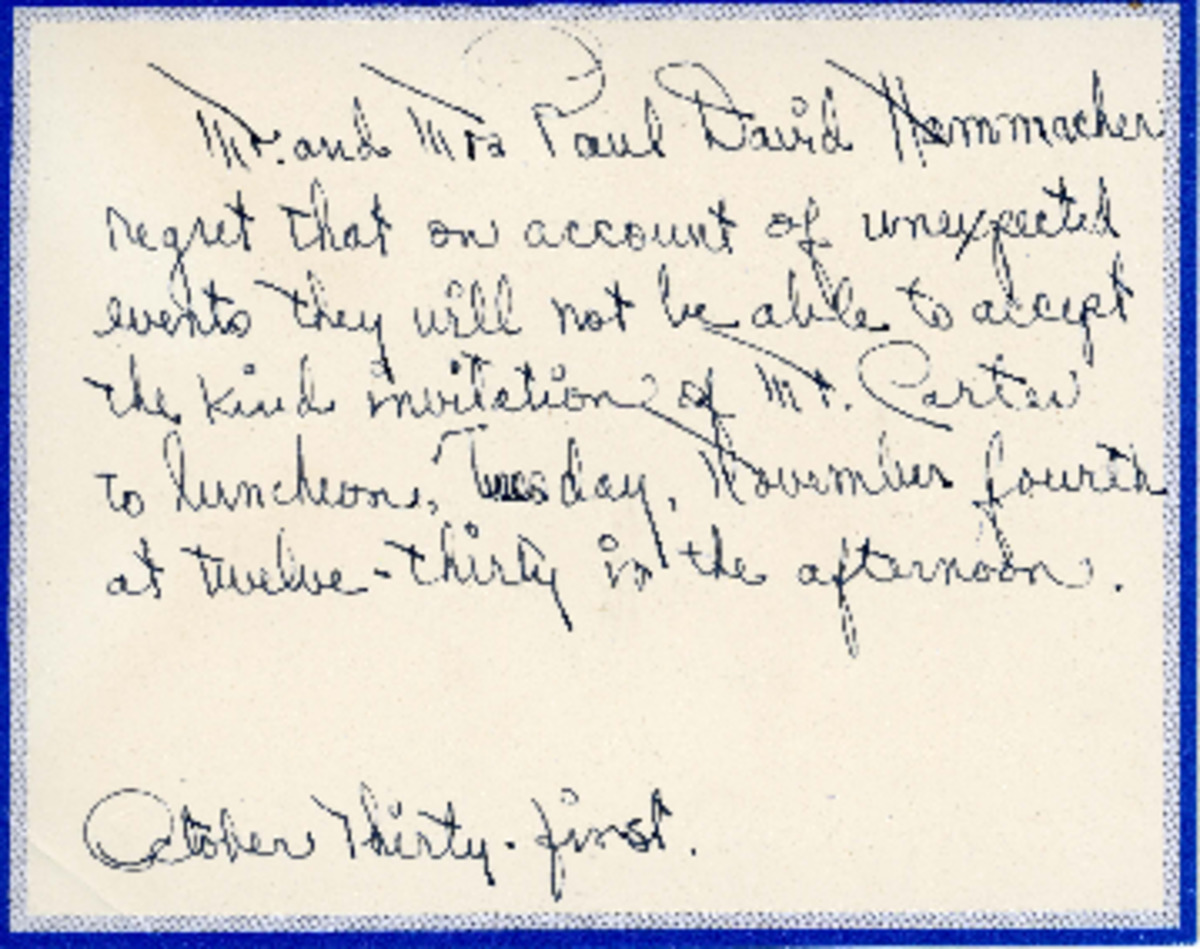 Mr. and Mrs Paul David Hammacher
regret that on account of unexpected
events they will not be able to accept
the kind invitation of Mr. Carter
to luncheon, Tuesday, November fourth
at twelve-thirty in the afternoon.
October Thirty-first.